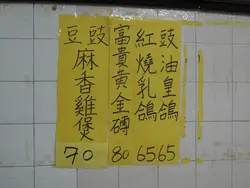 豉油皇鴿
65
紅燒乳鴿
65
富貴黃金磚
80
豆豉
麻香雞煲
70